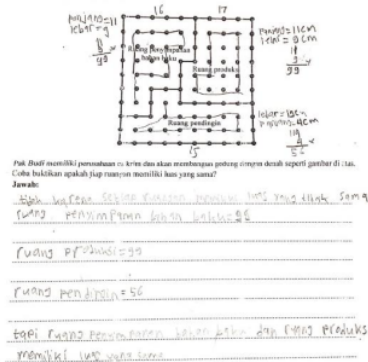 16 17
panjang=11
lebar=9
11
9
99
panjang=11cm
lebar=9cm
11
9
99
Ruang penyimpanan
bahan baku
Ruang produksi
Ruang pendingin
4cm
4
56
15
Pak Budi memiliki perusahaan es krim dan akan membangun gedung dengan denah seperti gambar di atas.
Coba buktikan apakah tiap ruangan memiliki luas yang sama?
Jawab:
karena setiap ruangan memiliki luas yang tidak sama
ruang penyimpanan bahan baku=
ruang produksi=99
ruang pendingin=56
tapi ruang penyimpanan bahan baku dan ruang produks
memiliki luas yang sama